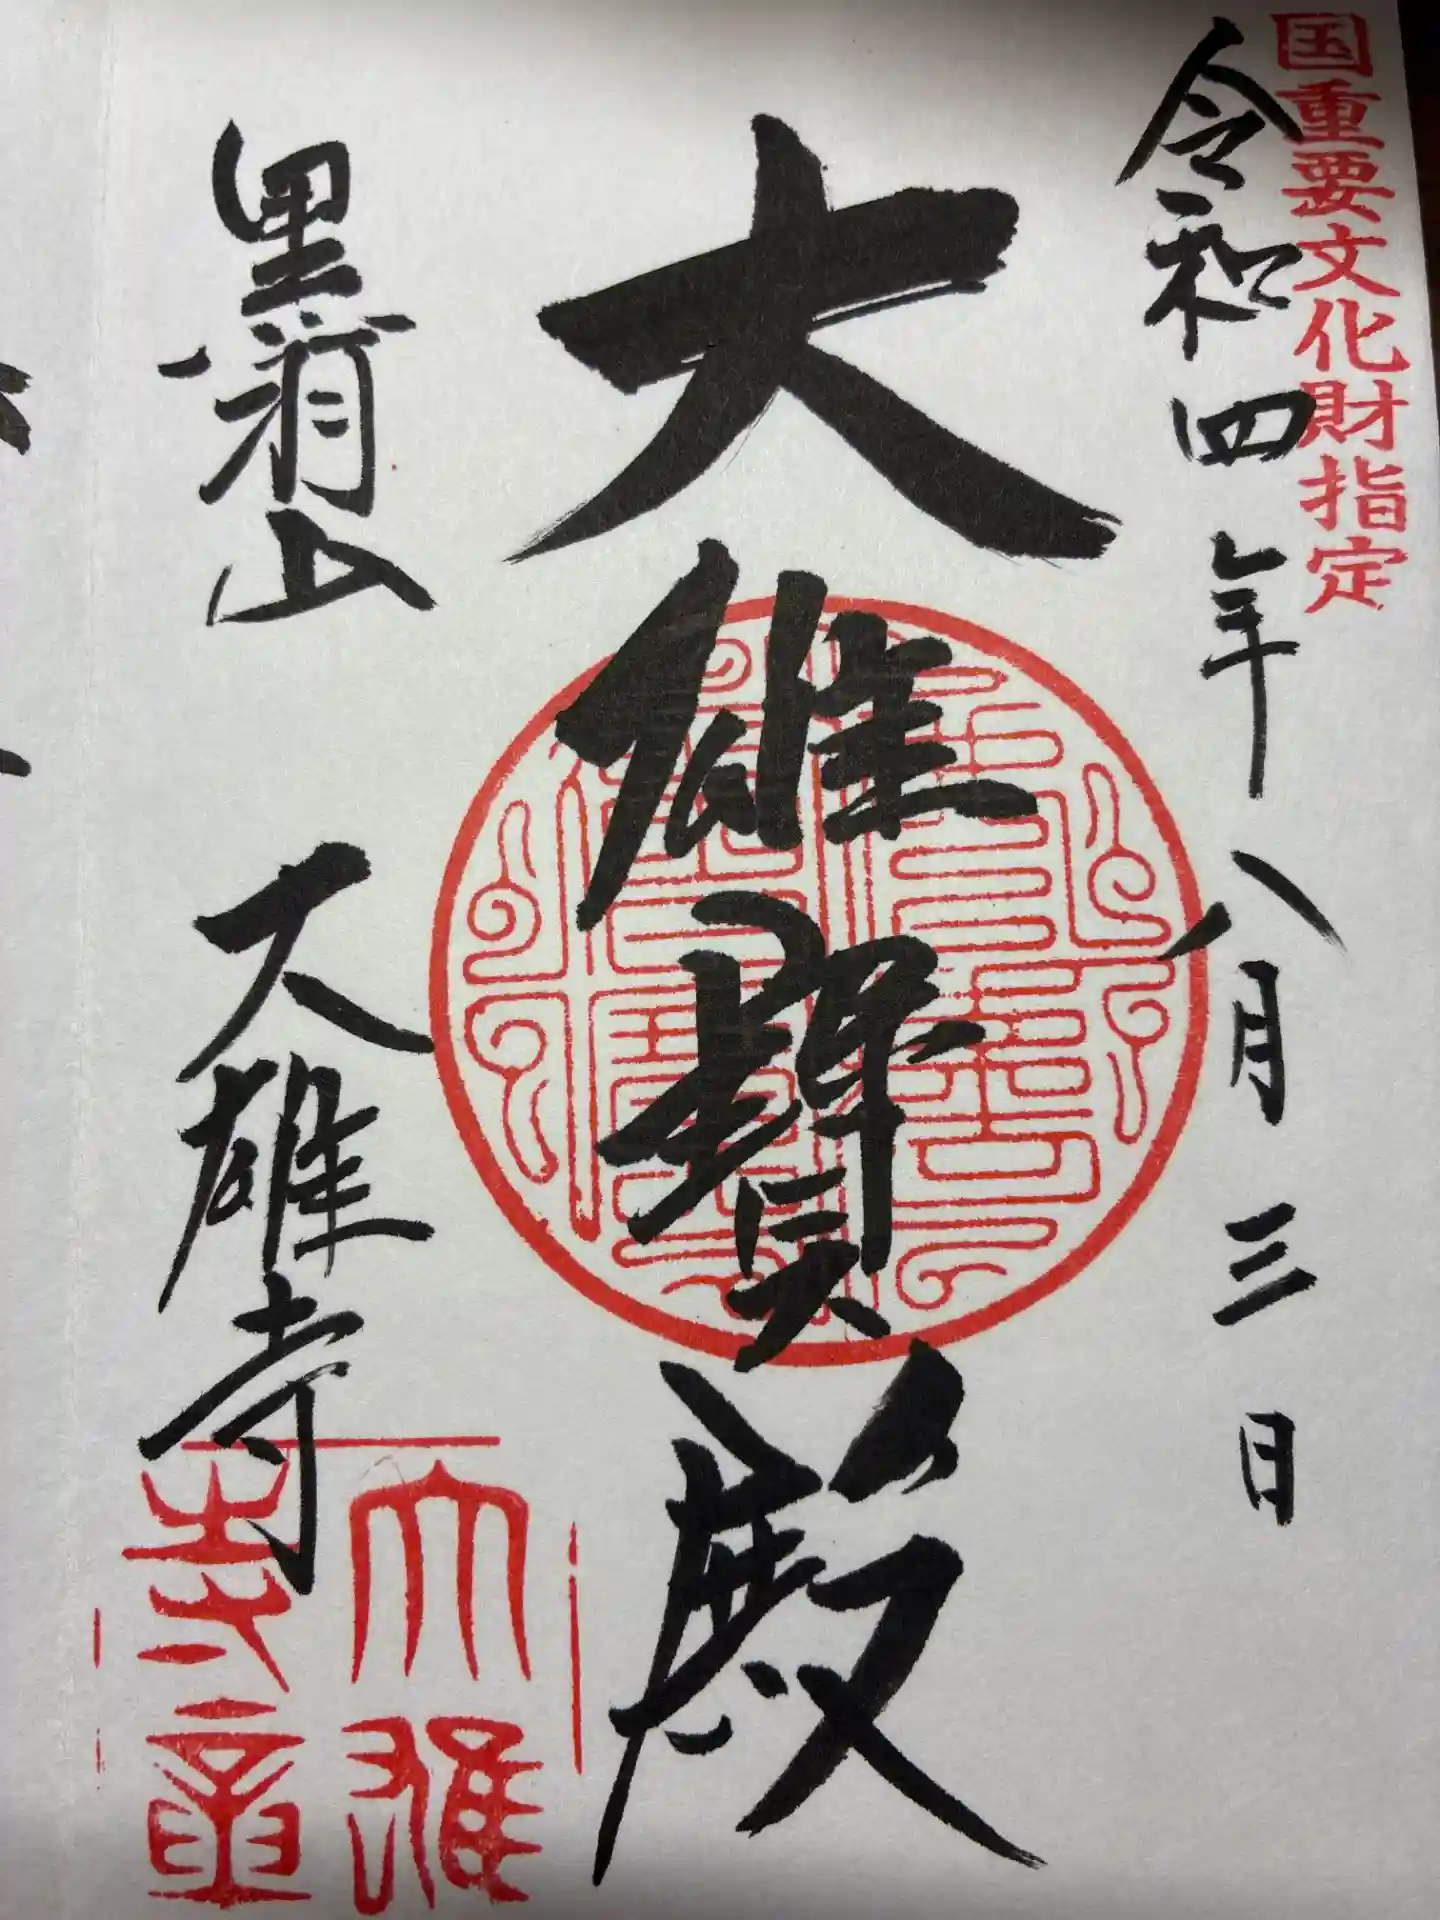 国重要文化財指定
令和四年八月三日
大雄寶殿
黒羽山 大雄寺
大雄
寺